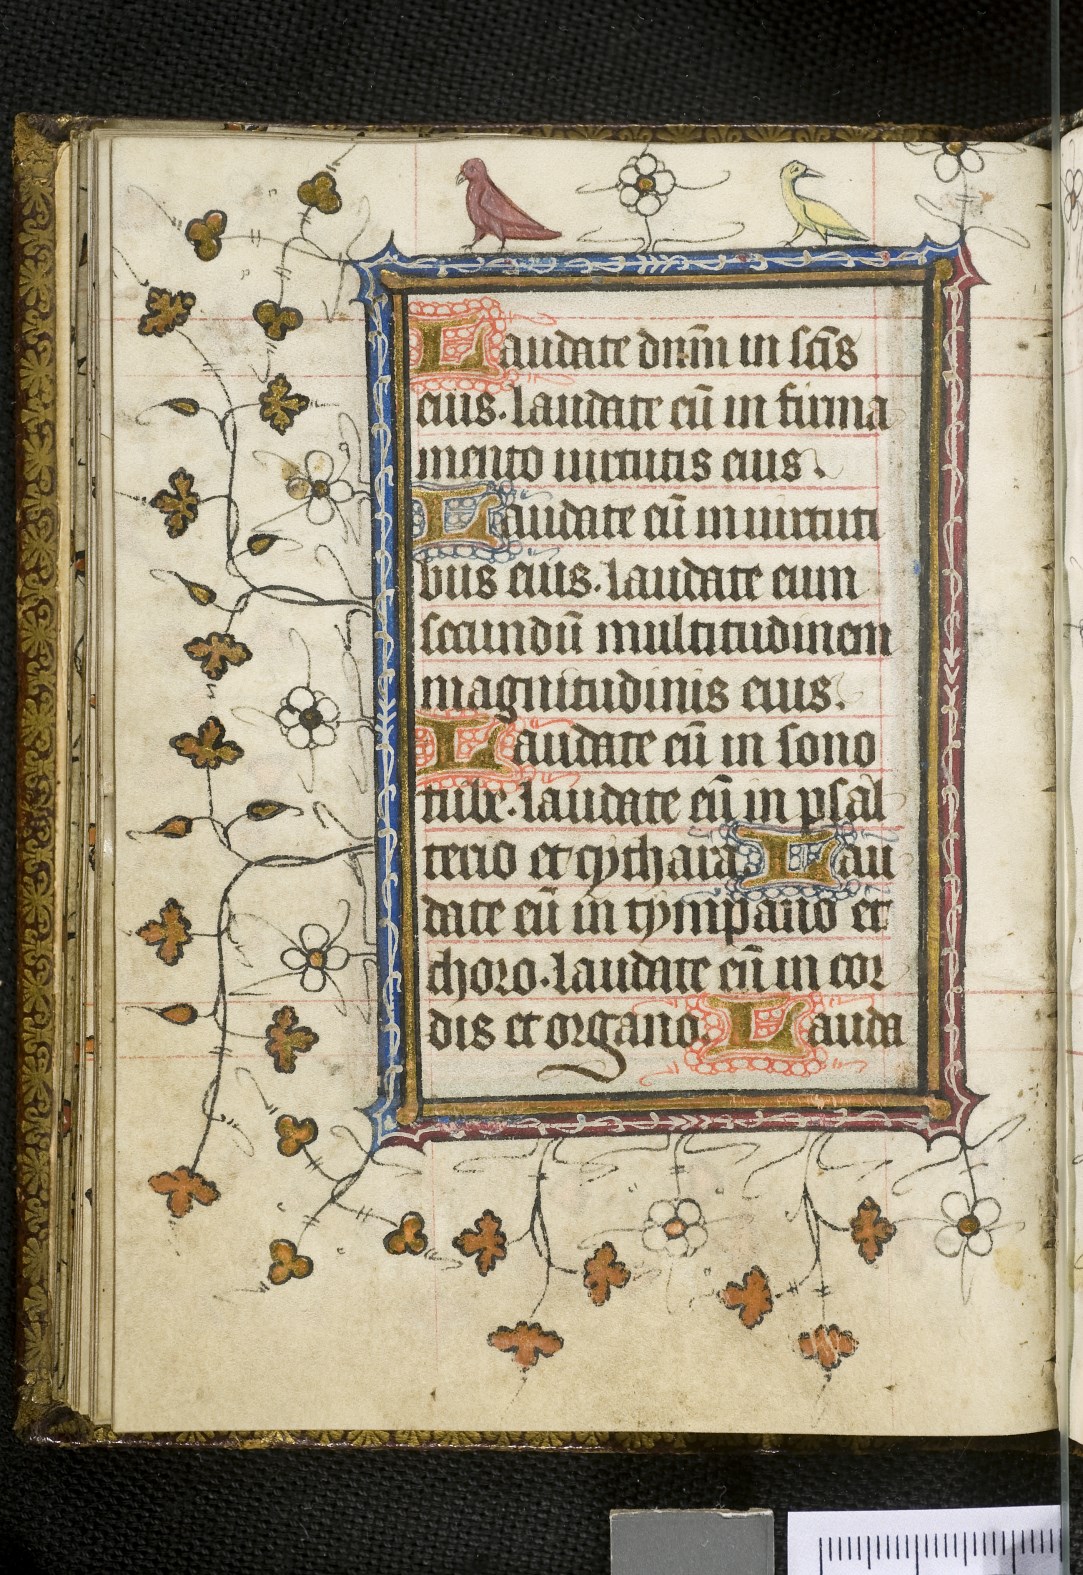 Laudate dnm̄ in sc̄is
eius. laudate eū in firma
mento uirtutis eius.
Laudate eū in uirtuti
bus eius. laudate eum
secundū multitudinem
magnitudinis eius.
Laudate eū in sono
tube. laudate eū in psal
terio et cythara Lau
date eū in tympano et
choro. laudate eū in cor
dis et organo. Lauda